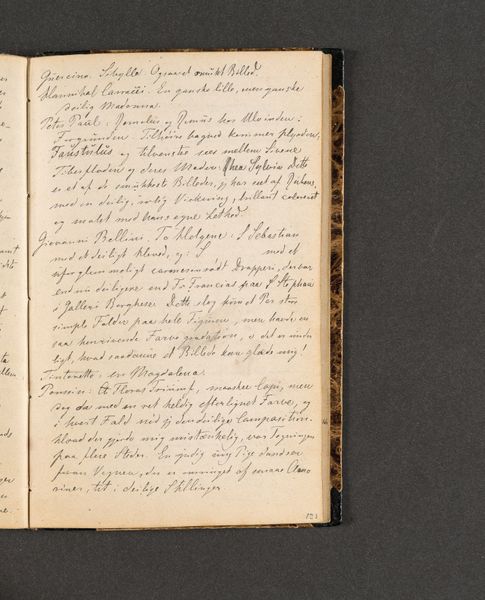 Guercino. Sibylla. Ogsaa et smukt Billed.
Hannibal Carracci. En ganske lille, men ganske
deilig Madonna.
Peter Paul: Romulus og Remus hos Ulvinden:
Forgrunden. Tilhøire bagved kommer
Faustulus og tilvenstre sees mellem Sivene
Tiberfloden og deres Moder Rhea Sylvia. Dette
er et af de smukkeste Billeder, jeg har seet af Rubens,
med en deilig, rolig Virkning, brillant coloreret
og malet med hans egne Lethed.
Giovanni Bellini. To Helgene: S Sebastian
med et deiligt Hoved, og: S med et
ufor glemmeligt carmoisinrødt Draperi, der var
endnu deiligere end Fr Francias paa S Stephan
i Galleri Borghese. Dette slog kun et Par store
simple Folder paa hele Figuren, men havde en
saa henrivende Farvegradation, at det er
ligt, hvad saadanne et Billede kan glæde mig!
Tintoretto: en Magdalena.
Poussin: Et Floras Triumf, maaskee Copi, men
dog da med en ret heldig efterlignet Farve, og
i hvert Fald med den deilige Composition.
Hvad der gjorde mig mistænkelig, var Tegningen
paa flere Steder. En yndig ung Pige dandser
foran Vognen, der er omringet af Amo
riner, tet i deilige Stillinger